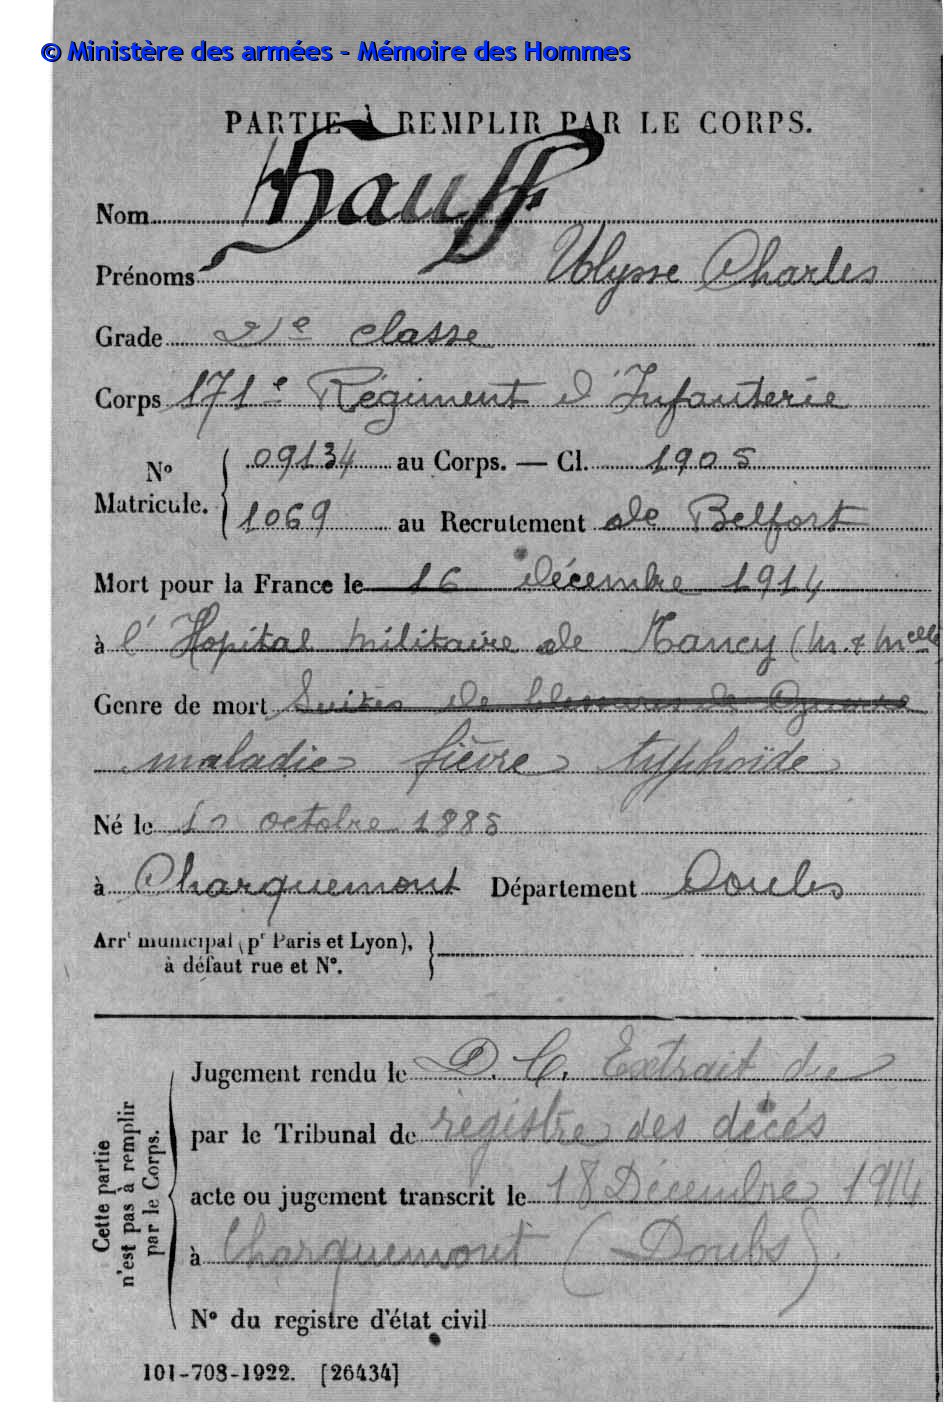 © Ministère des armées - Mémoire des Hommes
PARTIE À REMPLIR PAR LE CORPS.
Nom Hauff
Prénoms Ulysse Charles
Grade 2e classe
Corps 171e Régiment d'Infanterie
No Matricule. { 09134 au Corps. — Cl. 1905
1069 au Recrutement de Belfort
Mort pour la France le 16 décembre 1914
à l'Hopital Militaire de Nancy (M. & Melle)
Genre de mort Suites de blessures de Guerre
maladie fièvre typhoïde
Né le octobre 1885
à Charquemont Département Doubs
Arrt municipal (pr Paris et Lyon), à défaut rue et N°. }
Cette partie n'est pas à remplir par le Corps.
Jugement rendu le D.C. Extrait du
par le Tribunal de registre des décés
acte ou jugement transcrit le 18 Décembre 1914
à Charquemont (Doubs)
N° du registre d'état civil
101-708-1922. [26434]